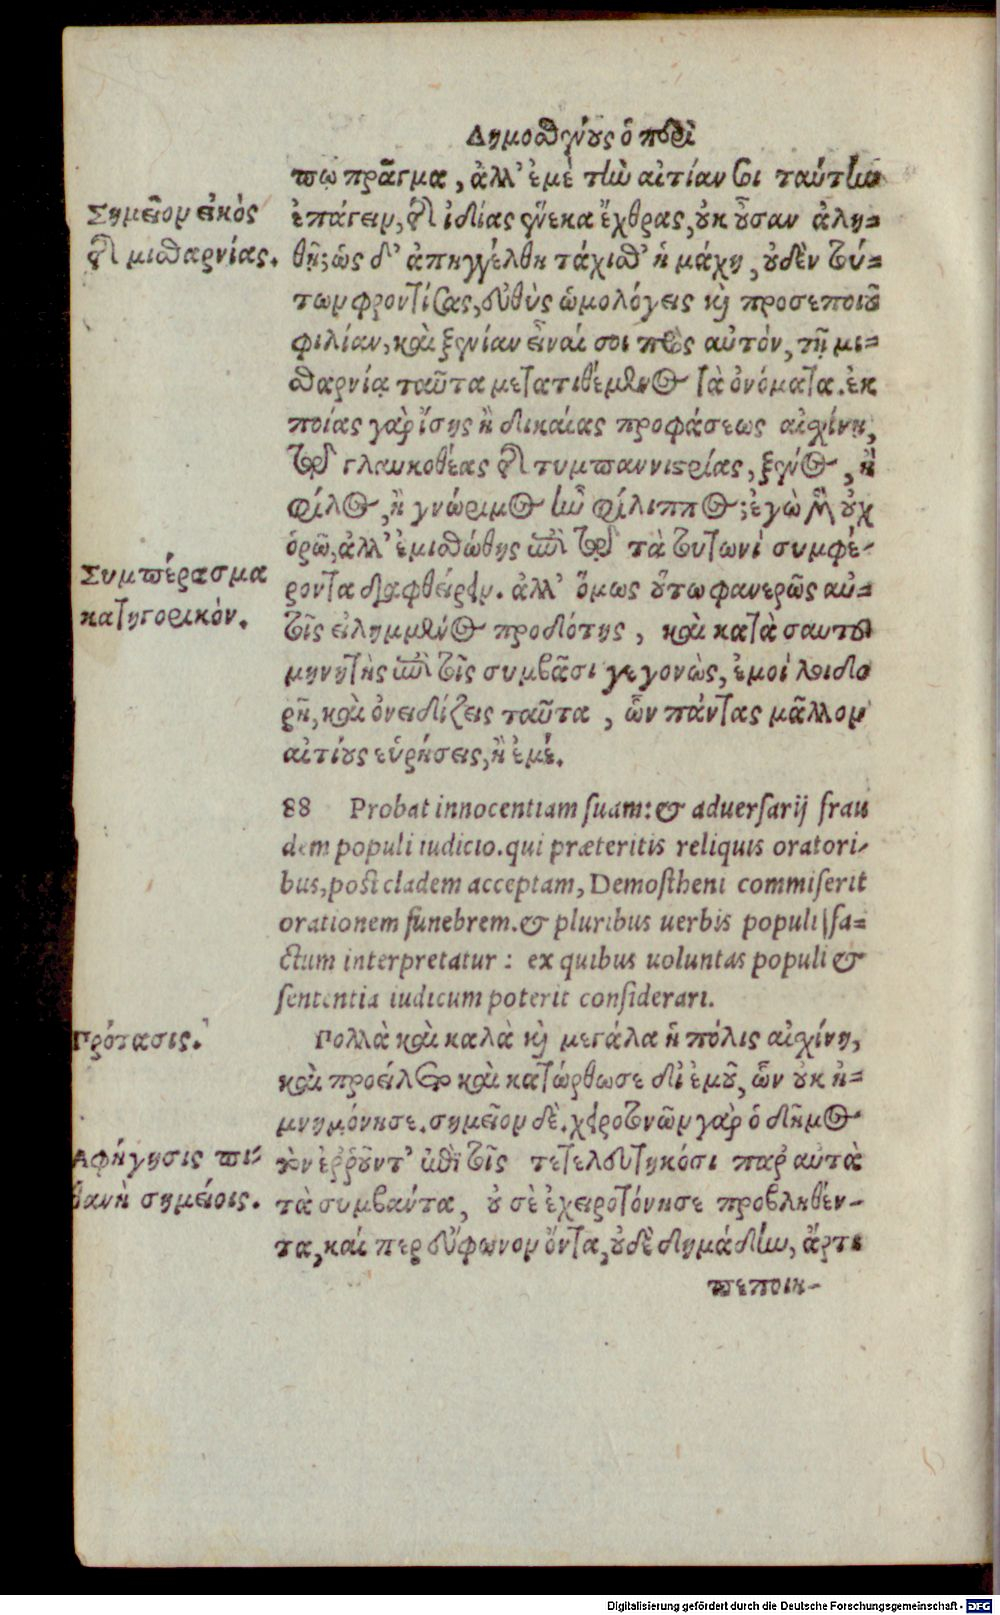 Δημοσθένους ὁ περὶ
πω πρᾶγμα, ἀλλ' ἐμὲ τὴν αἰτίαν σοι ταύτην
Σημεῖον εἰκὸς
ἐπάγειν, τῆς ἰδίας ἕνεκα ἔχθρας, οὐκ οὖσαν ἀλη-
τῆς μισθαρνίας.
θῆ; ὡς δ' ἀπηγγέλθη τάχισθ' ἡ μάχη, οὐδὲν τού-
των φροντίσας, εὐθὺς ὡμολόγεις καὶ προσεποιοῦ
φιλίαν, καὶ ξενίαν εἶναί σοι πρὸς αὐτόν, τῇ μι-
σθαρνίᾳ ταῦτα μετατιθέμενος τὰ ὀνόματα. ἐκ
ποίας γὰρ ἴσης ἢ δικαίας προφάσεως αἰσχίνῃ,
τῷ γλαυκοθέας τῆς τυμπαννιστρίας, ξένος, ἢ
φίλος, ἢ γνώριμος ἦν φίλιππος; ἐγὼ μὲν οὐχ
ὁρῶ, ἀλλ' ἐμισθώθης ἐπὶ τῷ τὰ τουτωνὶ συμφέ-
Συμπέρασμα
ροντα διαφθείρειν. ἀλλ' ὅμως οὕτω φανερῶς αὐ-
κατηγορικὸν.
τοῖς εἰλημμένος προδότης, καὶ κατὰ σαυτοῦ
μηνητὴς ἐπὶ τοῖς συμβᾶσι γεγονὼς, ἐμοὶ λοιδο
ρῇ, καὶ ὀνειδίζεις ταῦτα, ὧν πάντας μᾶλλον
αἰτίους εὑρήσεις, ἢ ἐμέ.
88 Probat innocentiam suam: & aduersarij frau
dem populi iudicio. qui præteritis reliquis oratori-
bus, post cladem acceptam, Demostheni commiserit
orationem funebrem. & pluribus uerbis populi fa-
ctum interpretatur: ex quibus uoluntas populi &
sententia iudicum poterit considerari.
Πρότασις.
Πολλὰ καὶ καλὰ καὶ μεγάλα ἡ πόλις αἰσχίνη,
καὶ προείλετο καὶ κατώρθωσε δι' ἐμοῦ, ὧν οὐκ ἠ-
μνημόνησε. σημεῖον δὲ. χειροτονῶν γὰρ ὁ δῆμος
Αφήγησις πι-
τὸν ἐροῦντ' ἐπὶ τοῖς τετελευτηκόσι παρ' αὐτὰ
θανὴ σημείοις.
τὰ συμβαντα, οὐ σὲ ἐχειροτόνησε προβληθέν-
τα, καί περ εὔφωνον ὄντα, οὐδὲ δημάδην, ἄρτι
πεποιη-
Digitalisierung gefördert durch die Deutsche Forschungsgemeinschaft - DFG